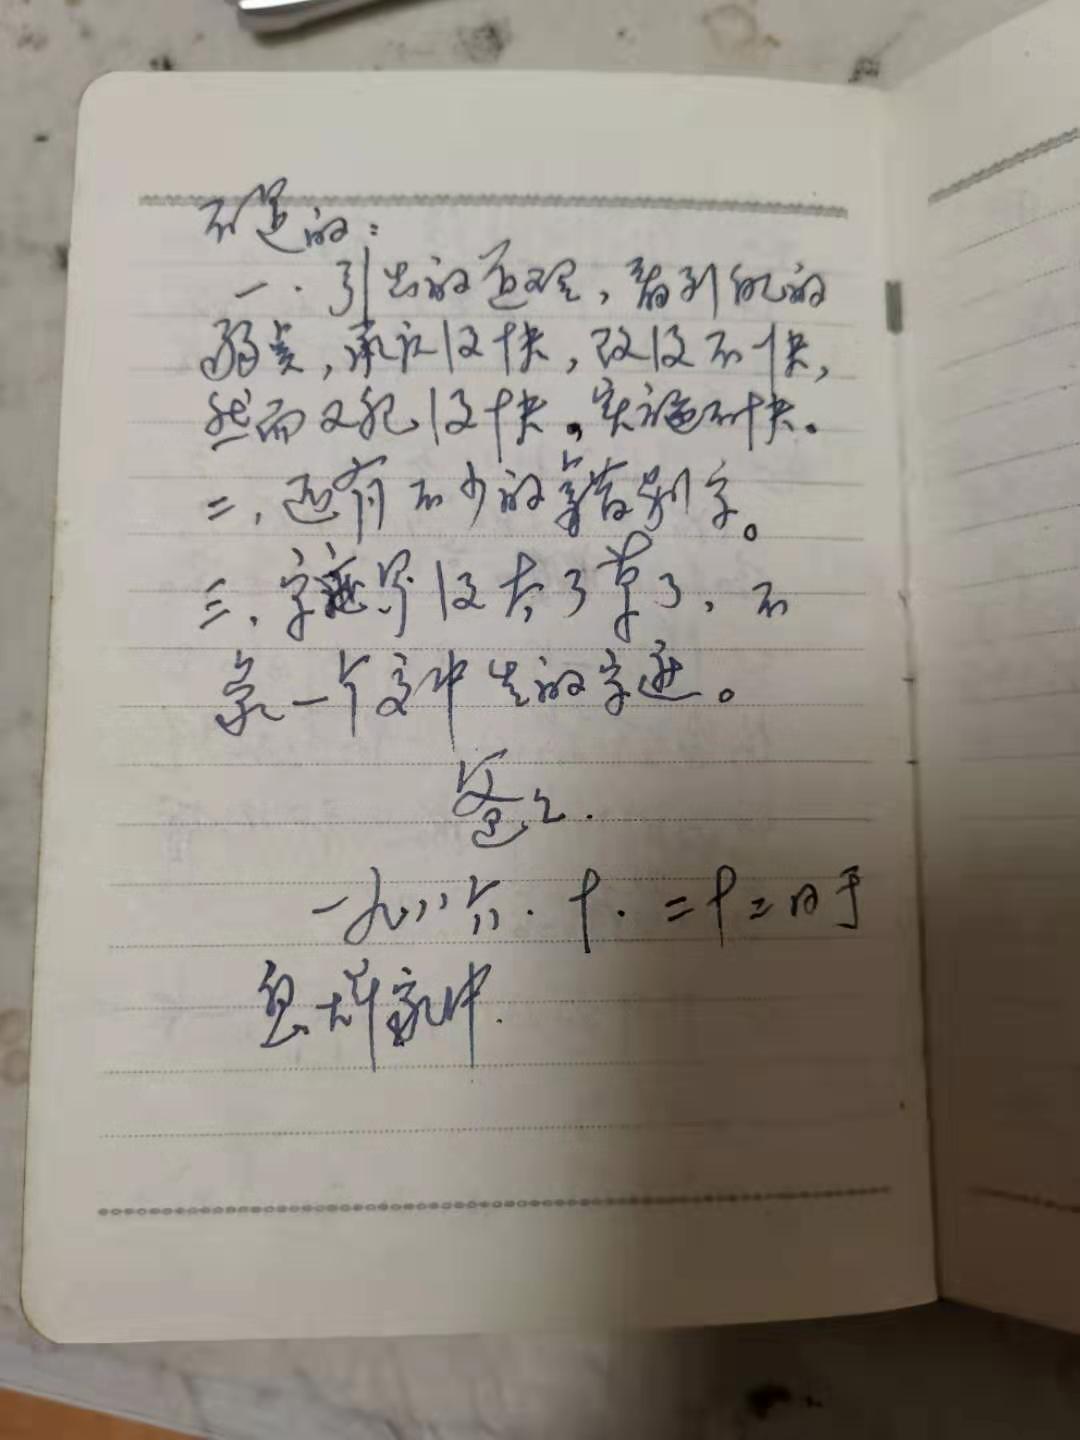 不足的：
一．引出的色难，看到自己的
弱点，承认很快，改很不快，
然而又犯很快。实施不快。
二，还有不少的错别字。
三，字迹写很太了草了，不
象一个文中生的字迹。
爸
一九八六．十．二十二日于
家中．